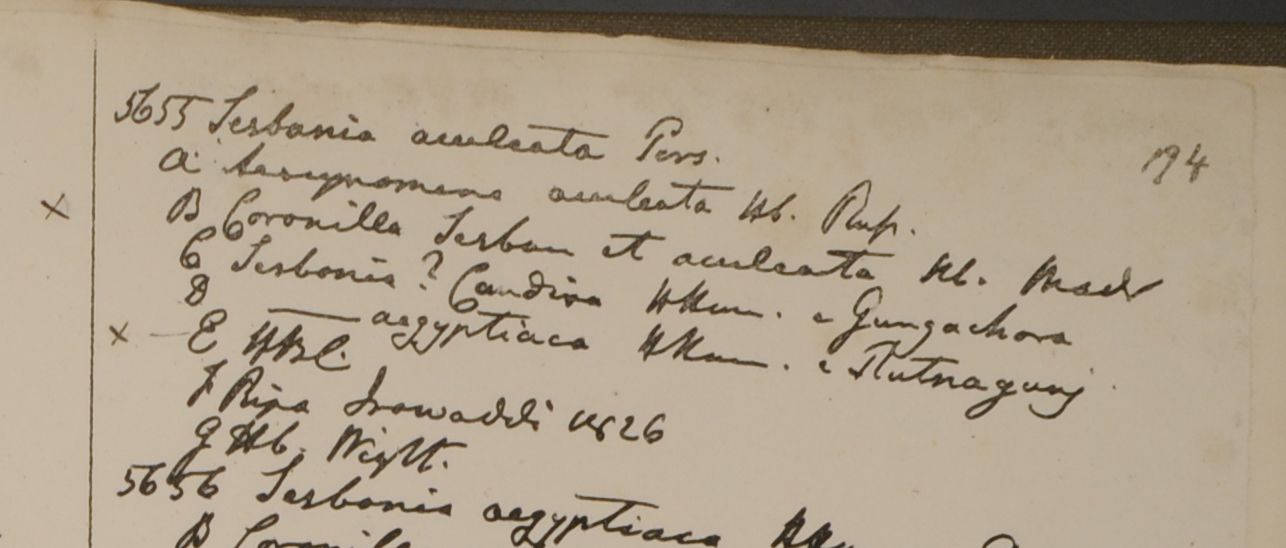 194
5655 Sesbania aculeata Pers.
a Aeschynomene aculeata Hb. Rup.
B Coronilla Sesban et aculeata Hb. Madr
C Sesbania? Candiva HHam. e Gungachora
D —— aegyptiaca HHam. e Rutnagunj
x E HBC.
F Ripa Irawaddi 1826
G Hb. Wight.
5656 Sesbania aegyptiaca
B